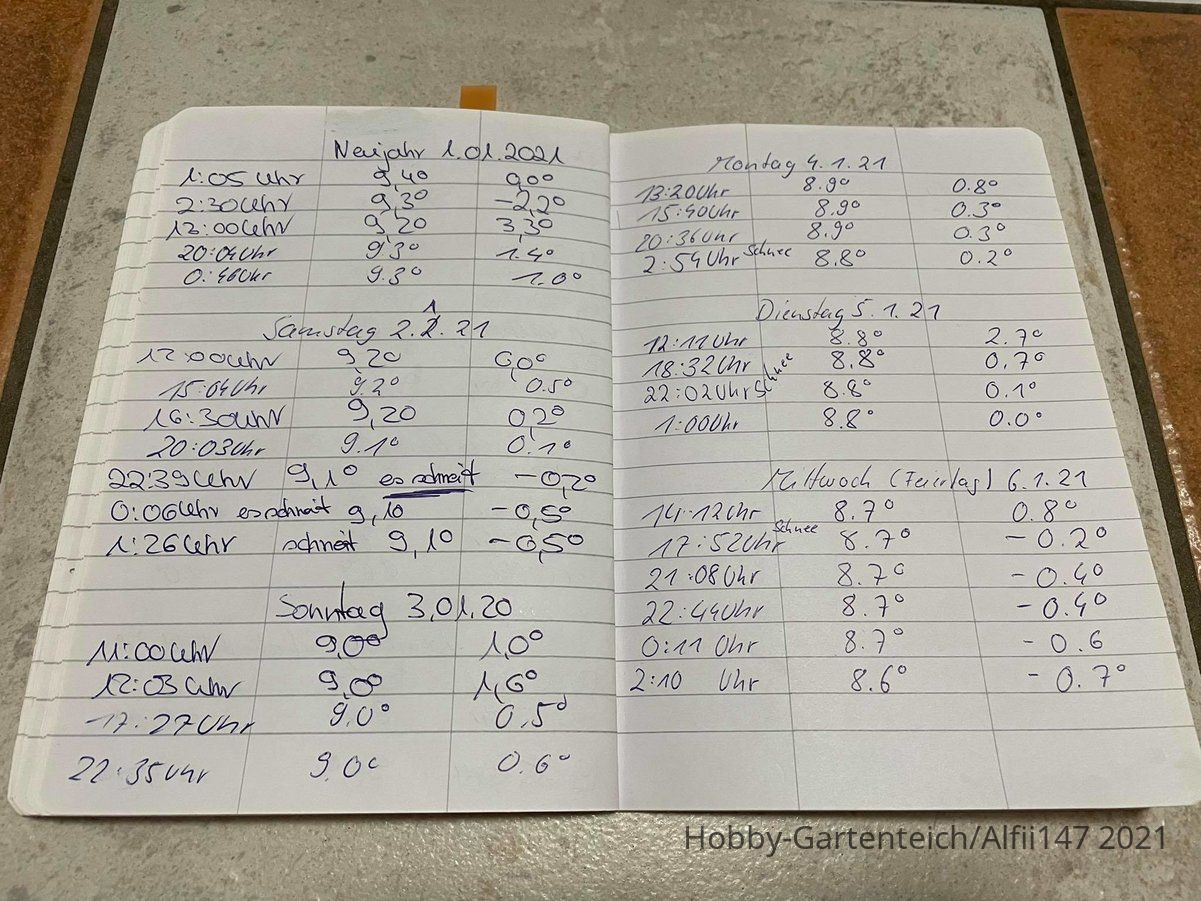 Neujahr 1.01.2021
1:05 Uhr 9,4° 0,0°
2:30 Uhr 9,3° -2,2°
12:00 Uhr 9,2° 3,3°
20:04 Uhr 9.3° 1.4°
0:46 Uhr 9.3° 1.0°
Samstag 2.1.21
12:00 Uhr 9,2° 0,0°
15:04 Uhr 9.2° 0.5°
16:30 Uhr 9,2° 0,2°
20:03 Uhr 9.1° 0.1°
22:39 Uhr 9,1° es schneit -0,2°
0:06 Uhr es schneit 9,1° -0,5°
1:26 Uhr schneit 9,1° -0,5°
Sonntag 3,01.20
11:00 Uhr 9,0° 1,0°
12:03 Uhr 9,0° 1,6°
17:27 Uhr 9.0° 0.5°
22:35 Uhr 9.0° 0.6°
Montag 4.1.21
13:20 Uhr 8.9° 0.8°
15:40 Uhr 8.9° 0.3°
20:36 Uhr 8.9° 0.3°
2:54 Uhr Schnee 8.8° 0.2°
Dienstag 5.1.21
12:11 Uhr 8.8° 2.7°
18:32 Uhr 8.8° 0.7°
22:02 Uhr Schnee 8.8° 0.1°
1:00 Uhr 8.8° 0.0°
Mittwoch (Feiertag) 6.1.21
14:12 Uhr 8.7° 0.8°
17:52 Uhr Schnee 8.7° -0.2°
21:08 Uhr 8.7° -0.4°
22:44 Uhr 8.7° -0.4°
0:11 Uhr 8.7° -0.6
2:10 Uhr 8.6° -0.7°
Hobby-Gartenteich/Alfii147 2021